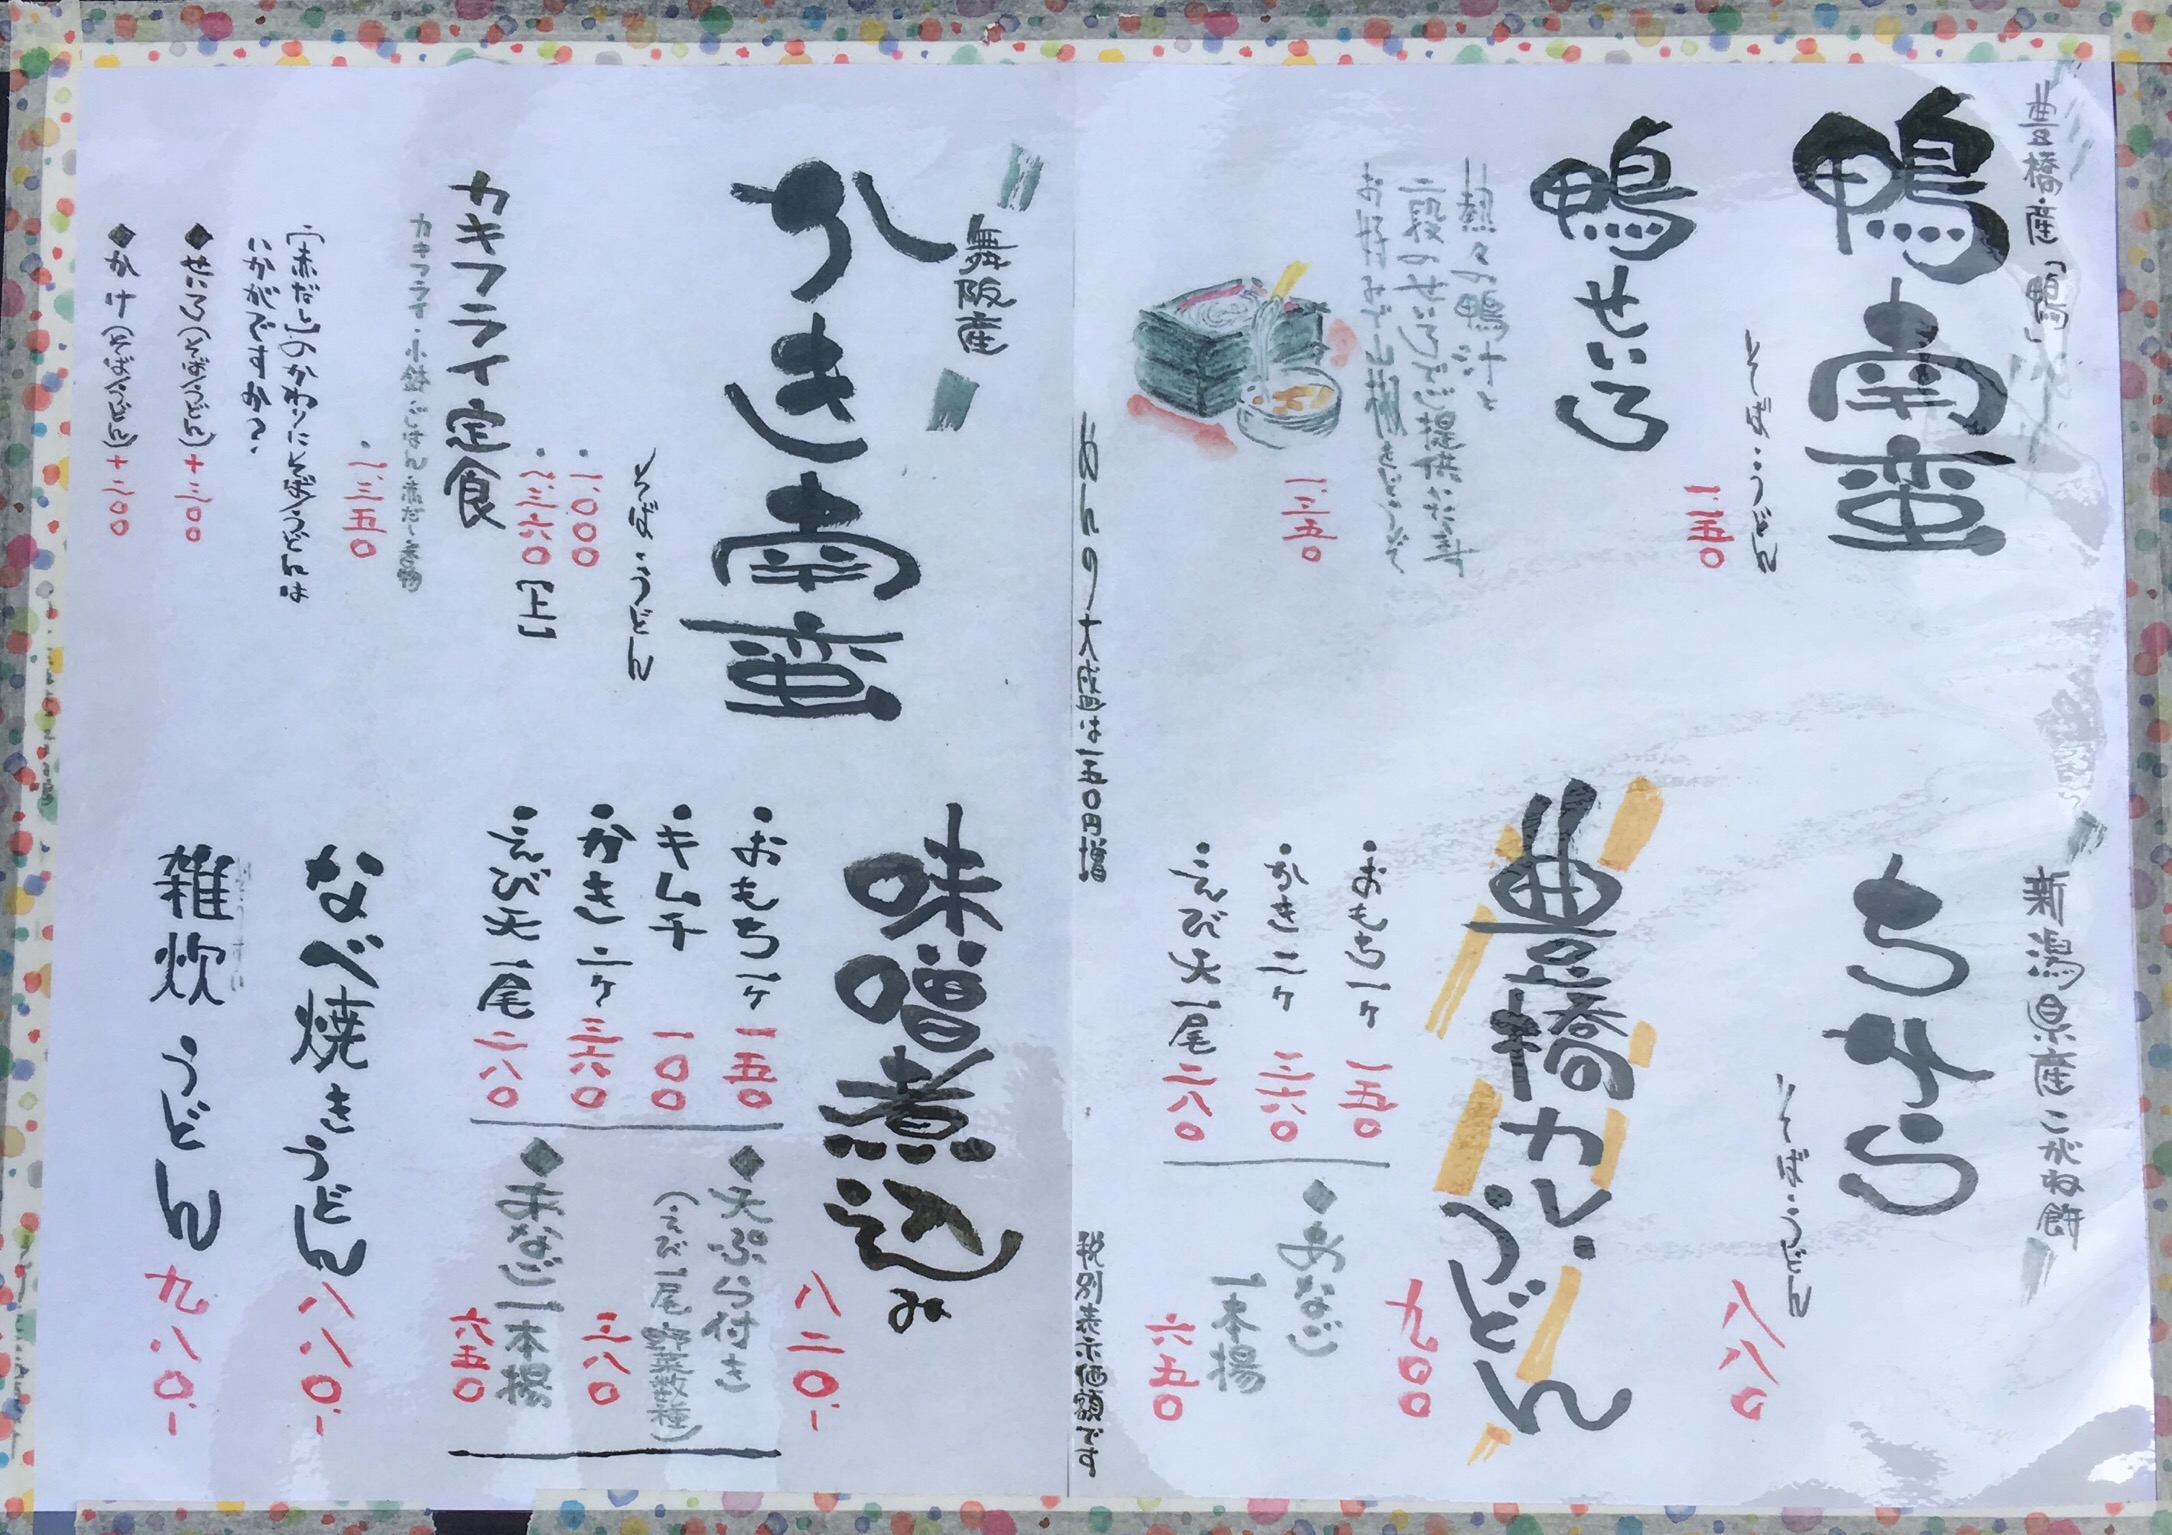 豊橋産「鴨」
鴨南蛮
そば・うどん
鴨せいろ
熱々の鴨汁と
二段のせいろでご提供致します
一、三五〇
新潟県産こがね餅
ちから
そば・うどん
八八〇
豊橋カレーうどん
九〇〇
・おもち一ヶ 一五〇
・かき二ヶ 三六〇
・えび天一尾 二八〇
◆あなご
一本揚
六五〇
めんの大盛は一五〇円増
税別表示価額です
舞阪産
かき南蛮
そば・うどん
・一、〇〇〇
・一、三六〇「上」
カキフライ定食
カキフライ・小鉢・ごはん・赤だし・香物
・一、三五〇
「赤だし」のかわりにそば/うどんは
いかがですか?
◆せいろ(そば/うどん)+二〇〇
◆かけ(そば/うどん)+二〇〇
味噌煮込み
八二〇
・おもち一ヶ 一五〇
・キムチ 一〇〇
・かき二ヶ 三六〇
・えび天一尾 二八〇
◆天ぷら付き
(えび一尾 野菜数種)
三八〇
◆あなご一本揚
六五〇
なべ焼きうどん 八八〇-
雑炊うどん 九八〇-